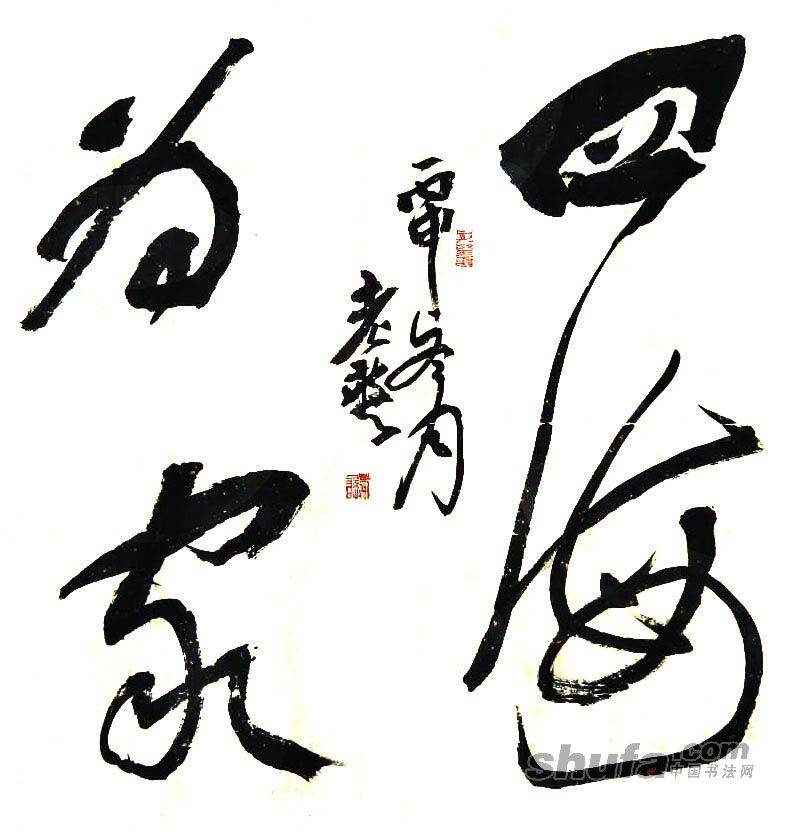 四海
为家
冬月
shufa.com
中国书法网